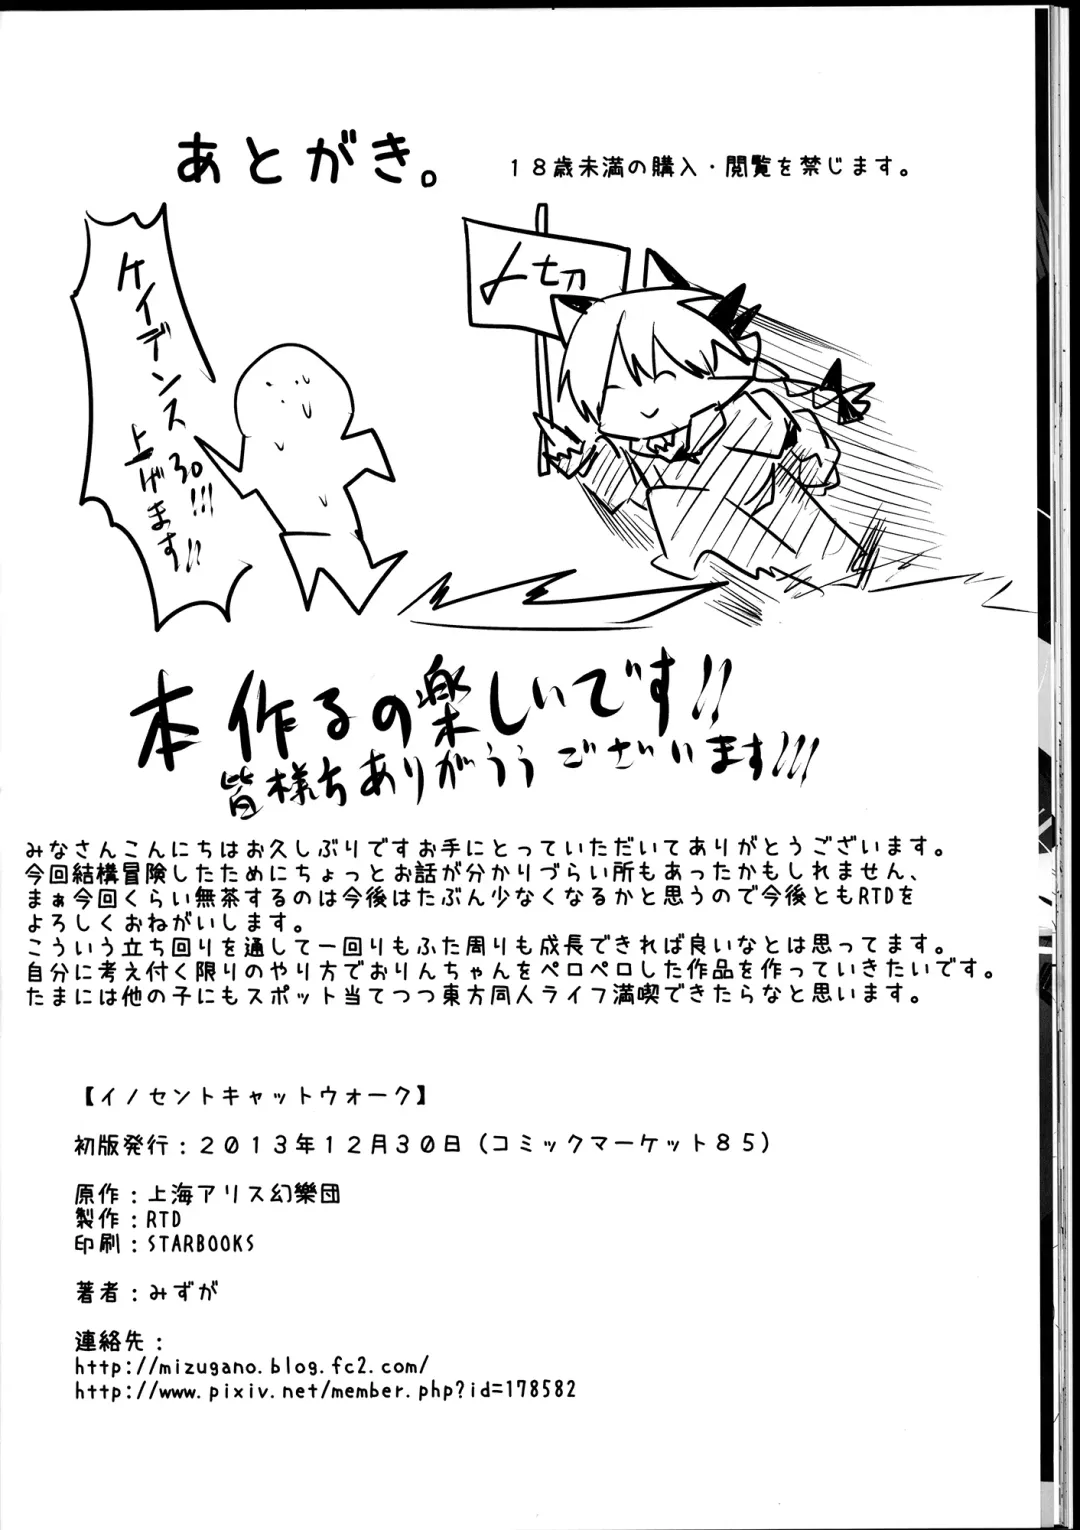 あとがき。
18歳未満の購入・閲覧を禁じます。
〆切
ケイデンス30!!!
上げます!!
本作るの楽しいです!!
皆様ちありがううございます!!!
みなさんこんにちはお久しぶりですお手にとっていただいてありがとうございます。
今回結構冒険したためにちょっとお話が分かりづらい所もあったかもしれません、
まぁ今回くらい無茶するのは今後はたぶん少なくなるかと思うので今後ともRTDを
よろしくおねがいします。
こういう立ち回りを通して一回りもふた周りも成長できれば良いなとは思ってます。
自分に考え付く限りのやり方でおりんちゃんをペロペロした作品を作っていきたいです。
たまには他の子にもスポット当てつつ東方同人ライフ満喫できたらなと思います。
【イノセントキャットウォーク】
初版発行:2013年12月30日(コミックマーケット85)
原作:上海アリス幻樂団
製作:RTD
印刷:STARBOOKS
著者:みずが
連絡先:
http://mizugano.blog.fc2.com/
http://www.pixiv.net/member.php?id=178582